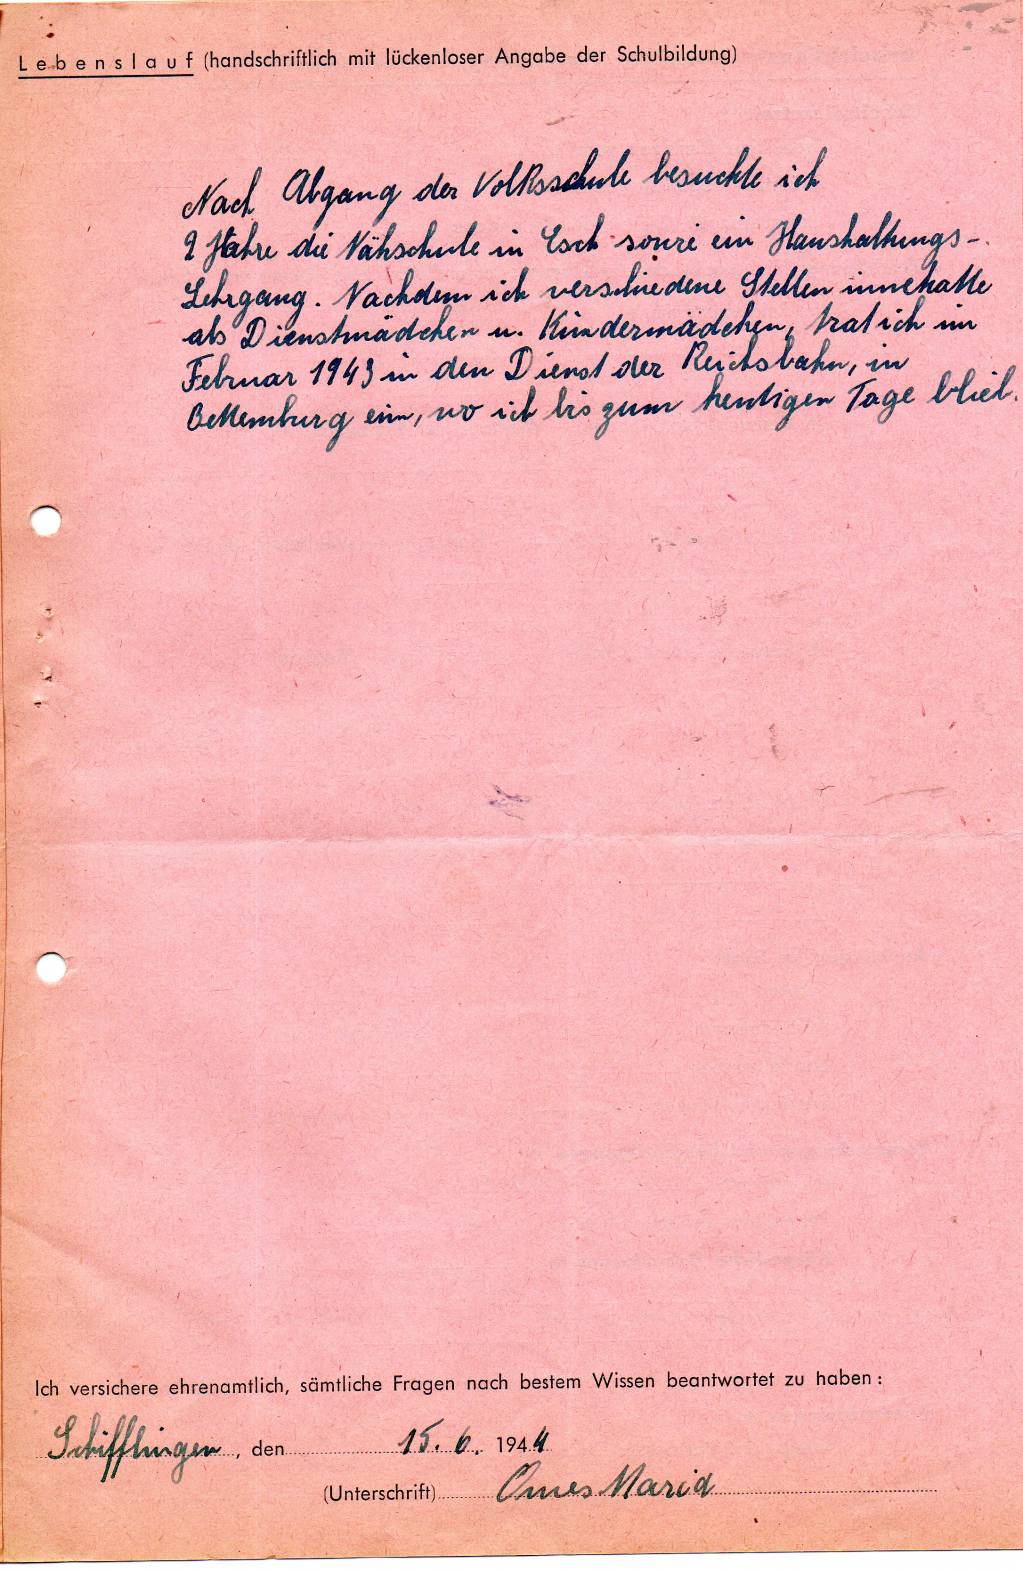 Lebenslauf (handschriftlich mit lückenloser Angabe der Schulbildung)
Nach Abgang der Volksschule besuchte ich
2 Jahre die Nähschule in Esch sowie ein Haushaltungs-
Lehrgang. Nachdem ich verschiedene Stellen innehatte
als Dienstmädchen u. Kindermädchen, trat ich im
Februar 1943 in den Dienst der Reichsbahn, in
Bettemburg ein, wo ich bis zum heutigen Tage blieb.
Ich versichere ehrenamtlich, sämtliche Fragen nach bestem Wissen beantwortet zu haben:
Schifflingen, den 15. 6. 1944
(Unterschrift) Omes Maria